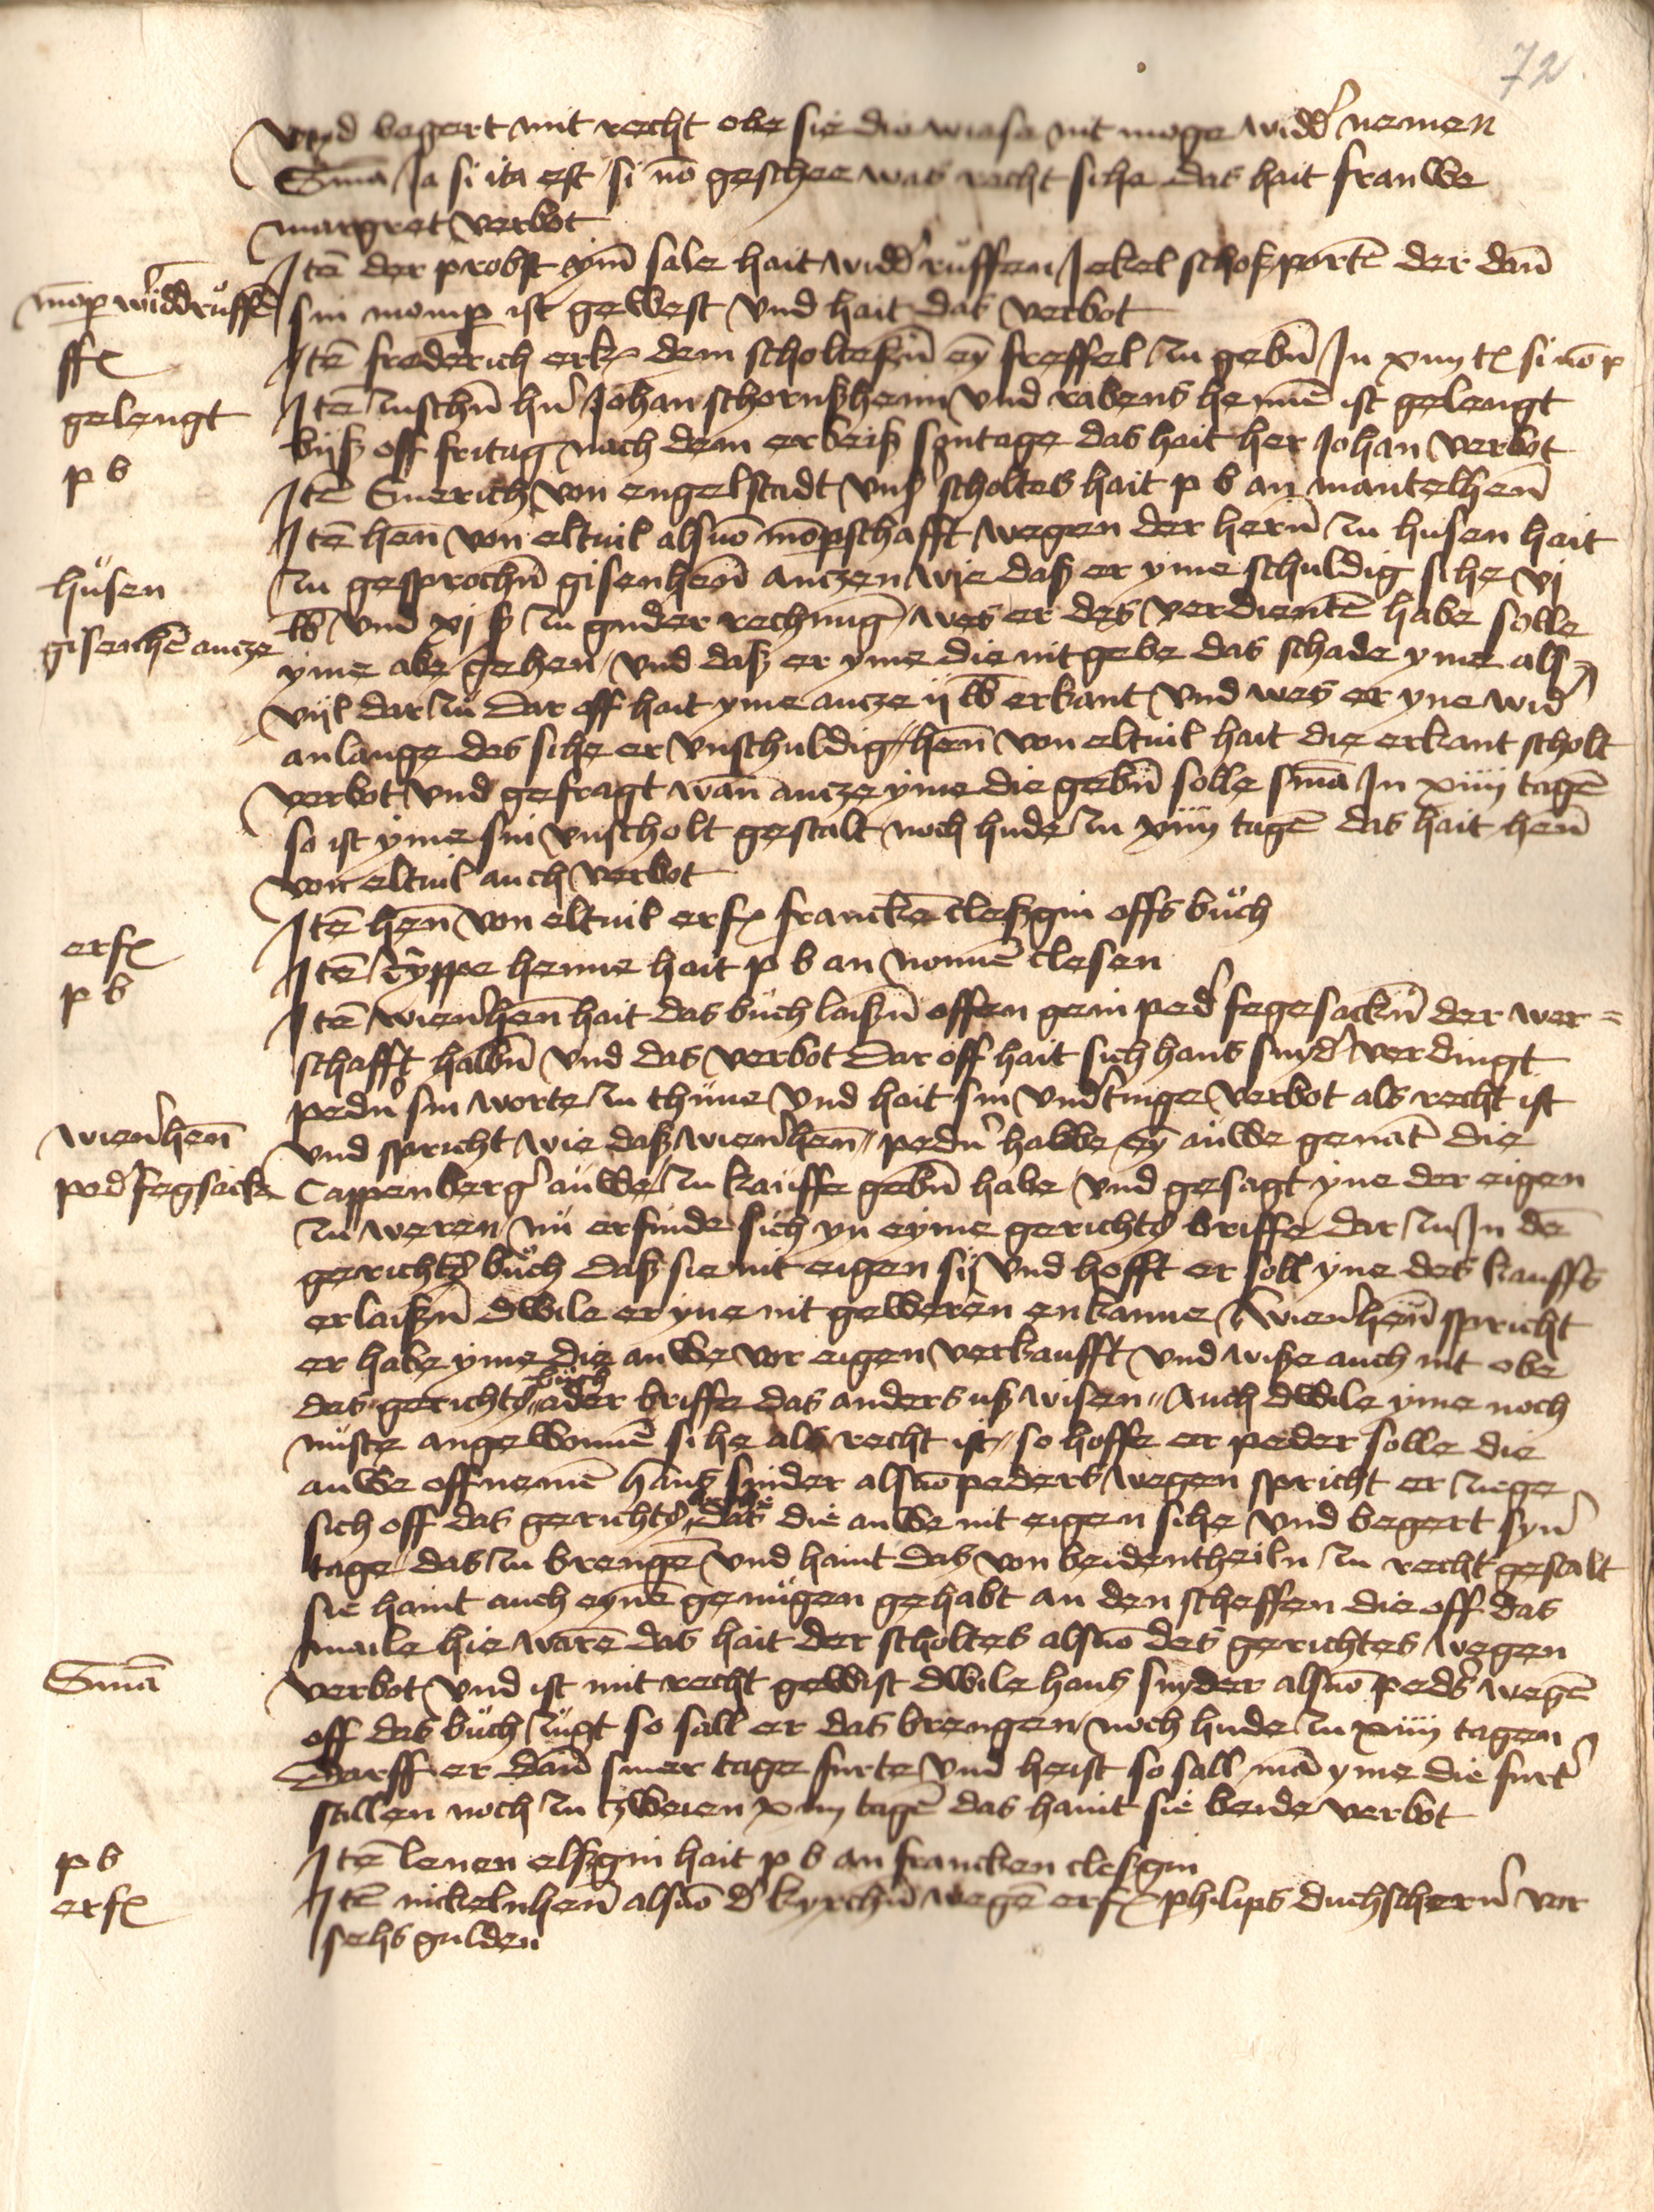 72
vnd begert mit recht obe sie die wiese nit moge widd' nemen
S̄ma Ja si ita est / si nō geschee was recht sihe das hait frauwe
margret verbot
Itē der probst ym̄ sale hait widd' ruffen Jekel schoßportē der dan̄
mōp widdruffē sin momp ist gewest vnd hait das verbot
ffꝭ Itē frederich erkꝭ dem scholteßn̄ eȳ freffel zu gebn̄ In xiiij tꝭ si nō p
gelengt Itē zuschn̄ hn̄ Johan schornßheim vnd rabens hennē ist gelengt
biß off fritag nach dem erbeiß sontage das hait her Johan verbot
p b Itē Emerich von engelstadt vnß scholtes hait p b an mantelhen̄
Itē hen̄ von eltuil alsūo mōpschafft wegen der hern̄ zu husen hait
husen zu gesprochn̄ gisenhen̄ anczen wie daß er yme schuldig sihe vj
gisenhē ancze lb vnd xj ß zu guder rechnūg wes er des verdientē habe solle
yme abe gehen / vnd daß er yme die nit gebe das schade yme als
vijl dar zu Dar off hait yme ancze ij lb erkant vnd wes er yne wid'
anlange des sihe er vnschuldig hen̄ von eltuil hait die erkant scholt
verbot vnd gefragt wan̄ ancze yme die gebn̄ solle s̄ma In xiiij tagē
so ist yme sin vnscholt gestalt noch hude zu xiiij tagē das hait hen̄
von eltuil auch verbot
erfꝭ Itē hen̄ von eltuil erfꝭ franckē cleßgin offs buch
p b Itē Typpe henne hait p b an nonnē clesen
Itē wien'hen̄ hait das buch laißn̄ offen gein ped' fegesackn̄ der wer=
schafft halbn̄ vnd das verbot Dar off hait sich hans snyd' verdingt
pedn̄ sin worte zu thune vnd hait sin vnd'tinge verbot als recht ist
wien'hen̄ vnd spricht wie daß wien'hen̄ pedn̄ habbe eȳ auwe genāt die
ped' fegsack Cappenberg' auwe zu kauffe gebn̄ habe vnd gesagt yne der eigen
zu weren / nu erfinde sich yn eyme gerichtß briffe dar zu In dē
gerichtß buch daß sie nit eigen sij vnd hofft er soll yne des kauffs
erlaißn̄ dwile er yne nit geweren enkanne / wien'hen̄ spricht
er habe yme die auwe vor eigen verkaufft vnd wiße auch nit obe
das gerichtß buch ader briffe das anders uß wisen Auch dwile yme noch
nuste angewonnē sihe als recht ist so hoffe er peder solle die
auwe offnemē hans snider alsūo peders wegen spricht er ziege
sich off das gerichtß buche das die auwe nit eigen sihe vnd begert syn̄
tage das zu brengē vnd haint das von beidentheiln zu recht gestalt
sie haint auch eynē genugen gehabt an den scheffen die off das
maile hie warē das hait der scholtes alsūo des gerichtes wegen
S̄ma verbot vnd ist mit recht gewist dwile hans snyder alsūo peds wegē
off das buch zugt so sall er das brengen noch hude zu xiiij tagen
Darff er dan̄ siner tage furte vnd heist so sall mā yme die furt'
stillen noch zu zweien xiiij tagē das haint sie beide verbot
p b Itē lenen elßgin hait p b an francken cleßgin
erfꝭ Itē nickelnhen̄ alsūo d' kyrchn̄ wegē erfꝭ philips duchschern̄ vor
sehs gulden